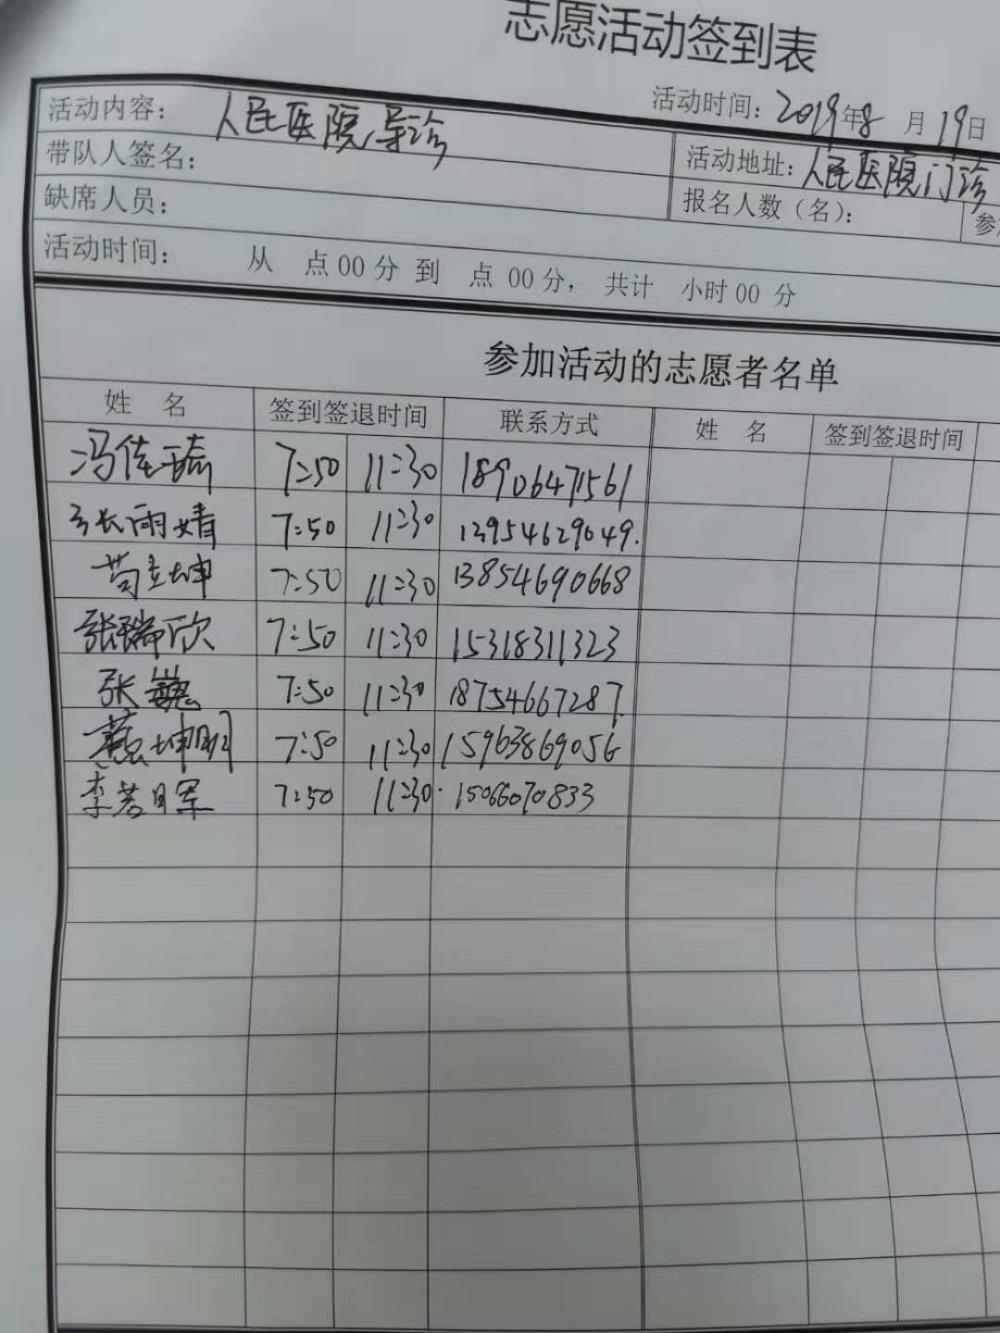 志愿活动签到表
活动时间：2019年8月19日
活动内容：人民医院导诊
带队人签名：
活动地址：人民医院门诊
缺席人员：
报名人数（名）：
活动时间： 从 点00分到 点00分， 共计 小时00分
参加活动的志愿者名单
姓 名 签到签退时间 联系方式 姓 名 签到签退时间
冯佳瑜 7:50 11:30 18906471561
张雨婧 7:50 11:30 13954629049.
苟立坤 7:50 11:30 13854690668
张瑞欣 7:50 11:30 15318311323
张巍 7:50 11:30 18754667287.
坤明 7:50 11:30 15963869056
李 7:50 11:30. 15066070833